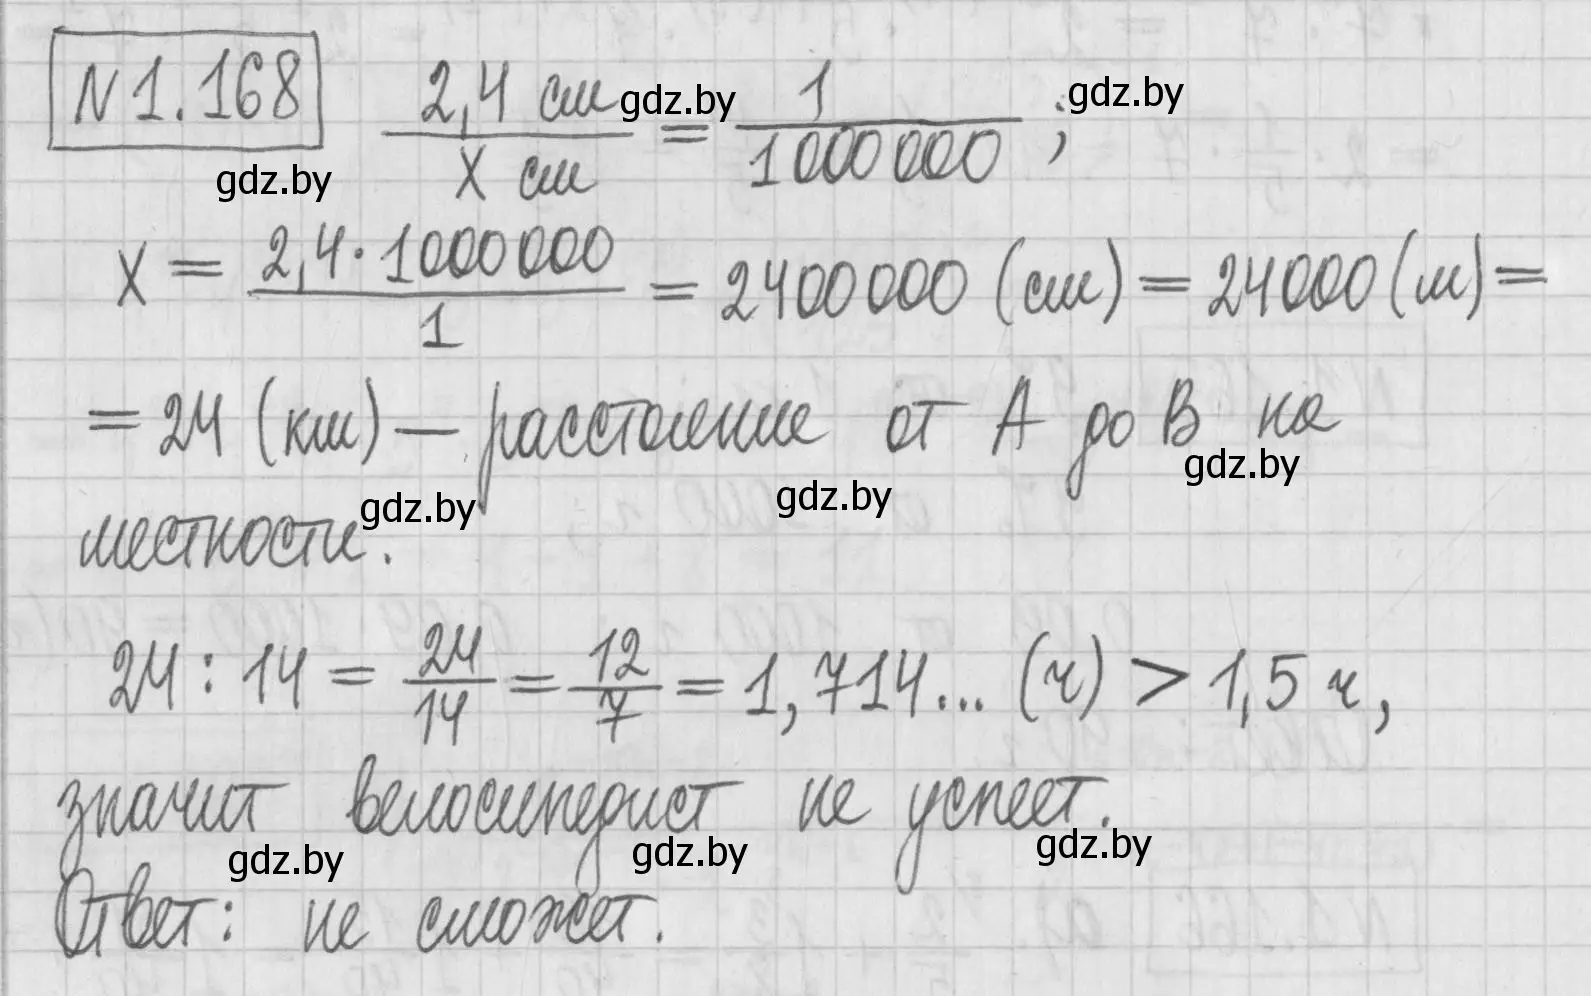 N 1.168 2,4 см / x см = 1 / 1000000 ;
x = 2,4 · 1000000 / 1 = 2400000 (см) = 24000 (м) =
= 24 (км) — расстояние от А до В на
местности.
24 : 14 = 24/14 = 12/7 = 1,714... (ч) > 1,5 ч,
значит велосипедист не успеет.
Ответ: не сможет.
gdz.by
gdz.by
gdz.by
gdz.by
gdz.by
gdz.by
gdz.by
gdz.by
gdz.by